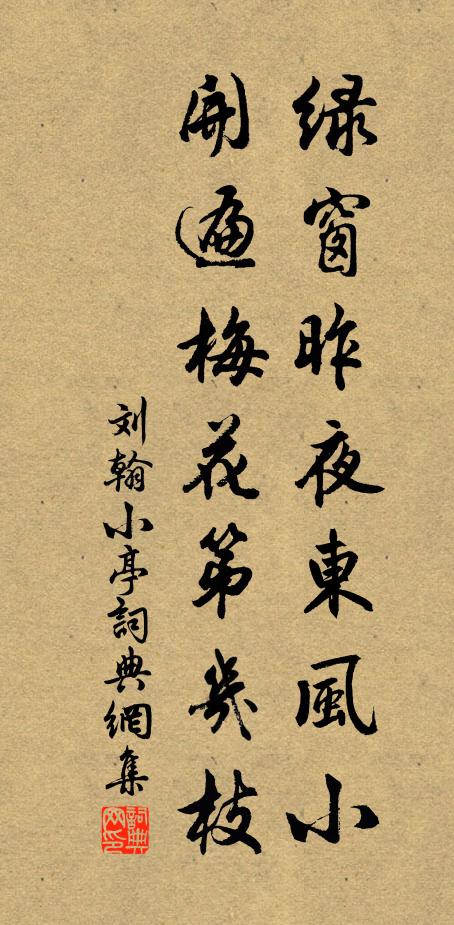 绿窗昨夜東風小
開遍梅花第幾枝
刘翰小亭詞典網集
詞典网印